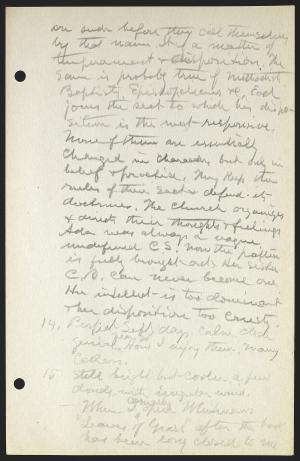 are such before they call themselves
by that name. It is a matter of
temperament & disposition. The
same is probably true of Methodists
Baptists, Episcopalians &c. Each
joins the sect to which his dispo-
sition is the most responsive.
None of them are essentially
changed in character, but only in
belief & practice. They keep the
rules of their sect & defend its
doctrines. The Church organizes
& directs their thoughts & feelings
Ada was always a vague
undefined C.S. Now the pattern
is fully brought out. Her sister
C.B. can never become one
Her intellect is too dominant
& her disposition too honest.
14, Perfect Sept days. Calm clear
genial. How I enjoy them. Many
callers.
15 Still bright but cooler a few
clouds with irregular wind.
When I open Whitman's
"Leaves of Grass" after the book
has been long closed to me